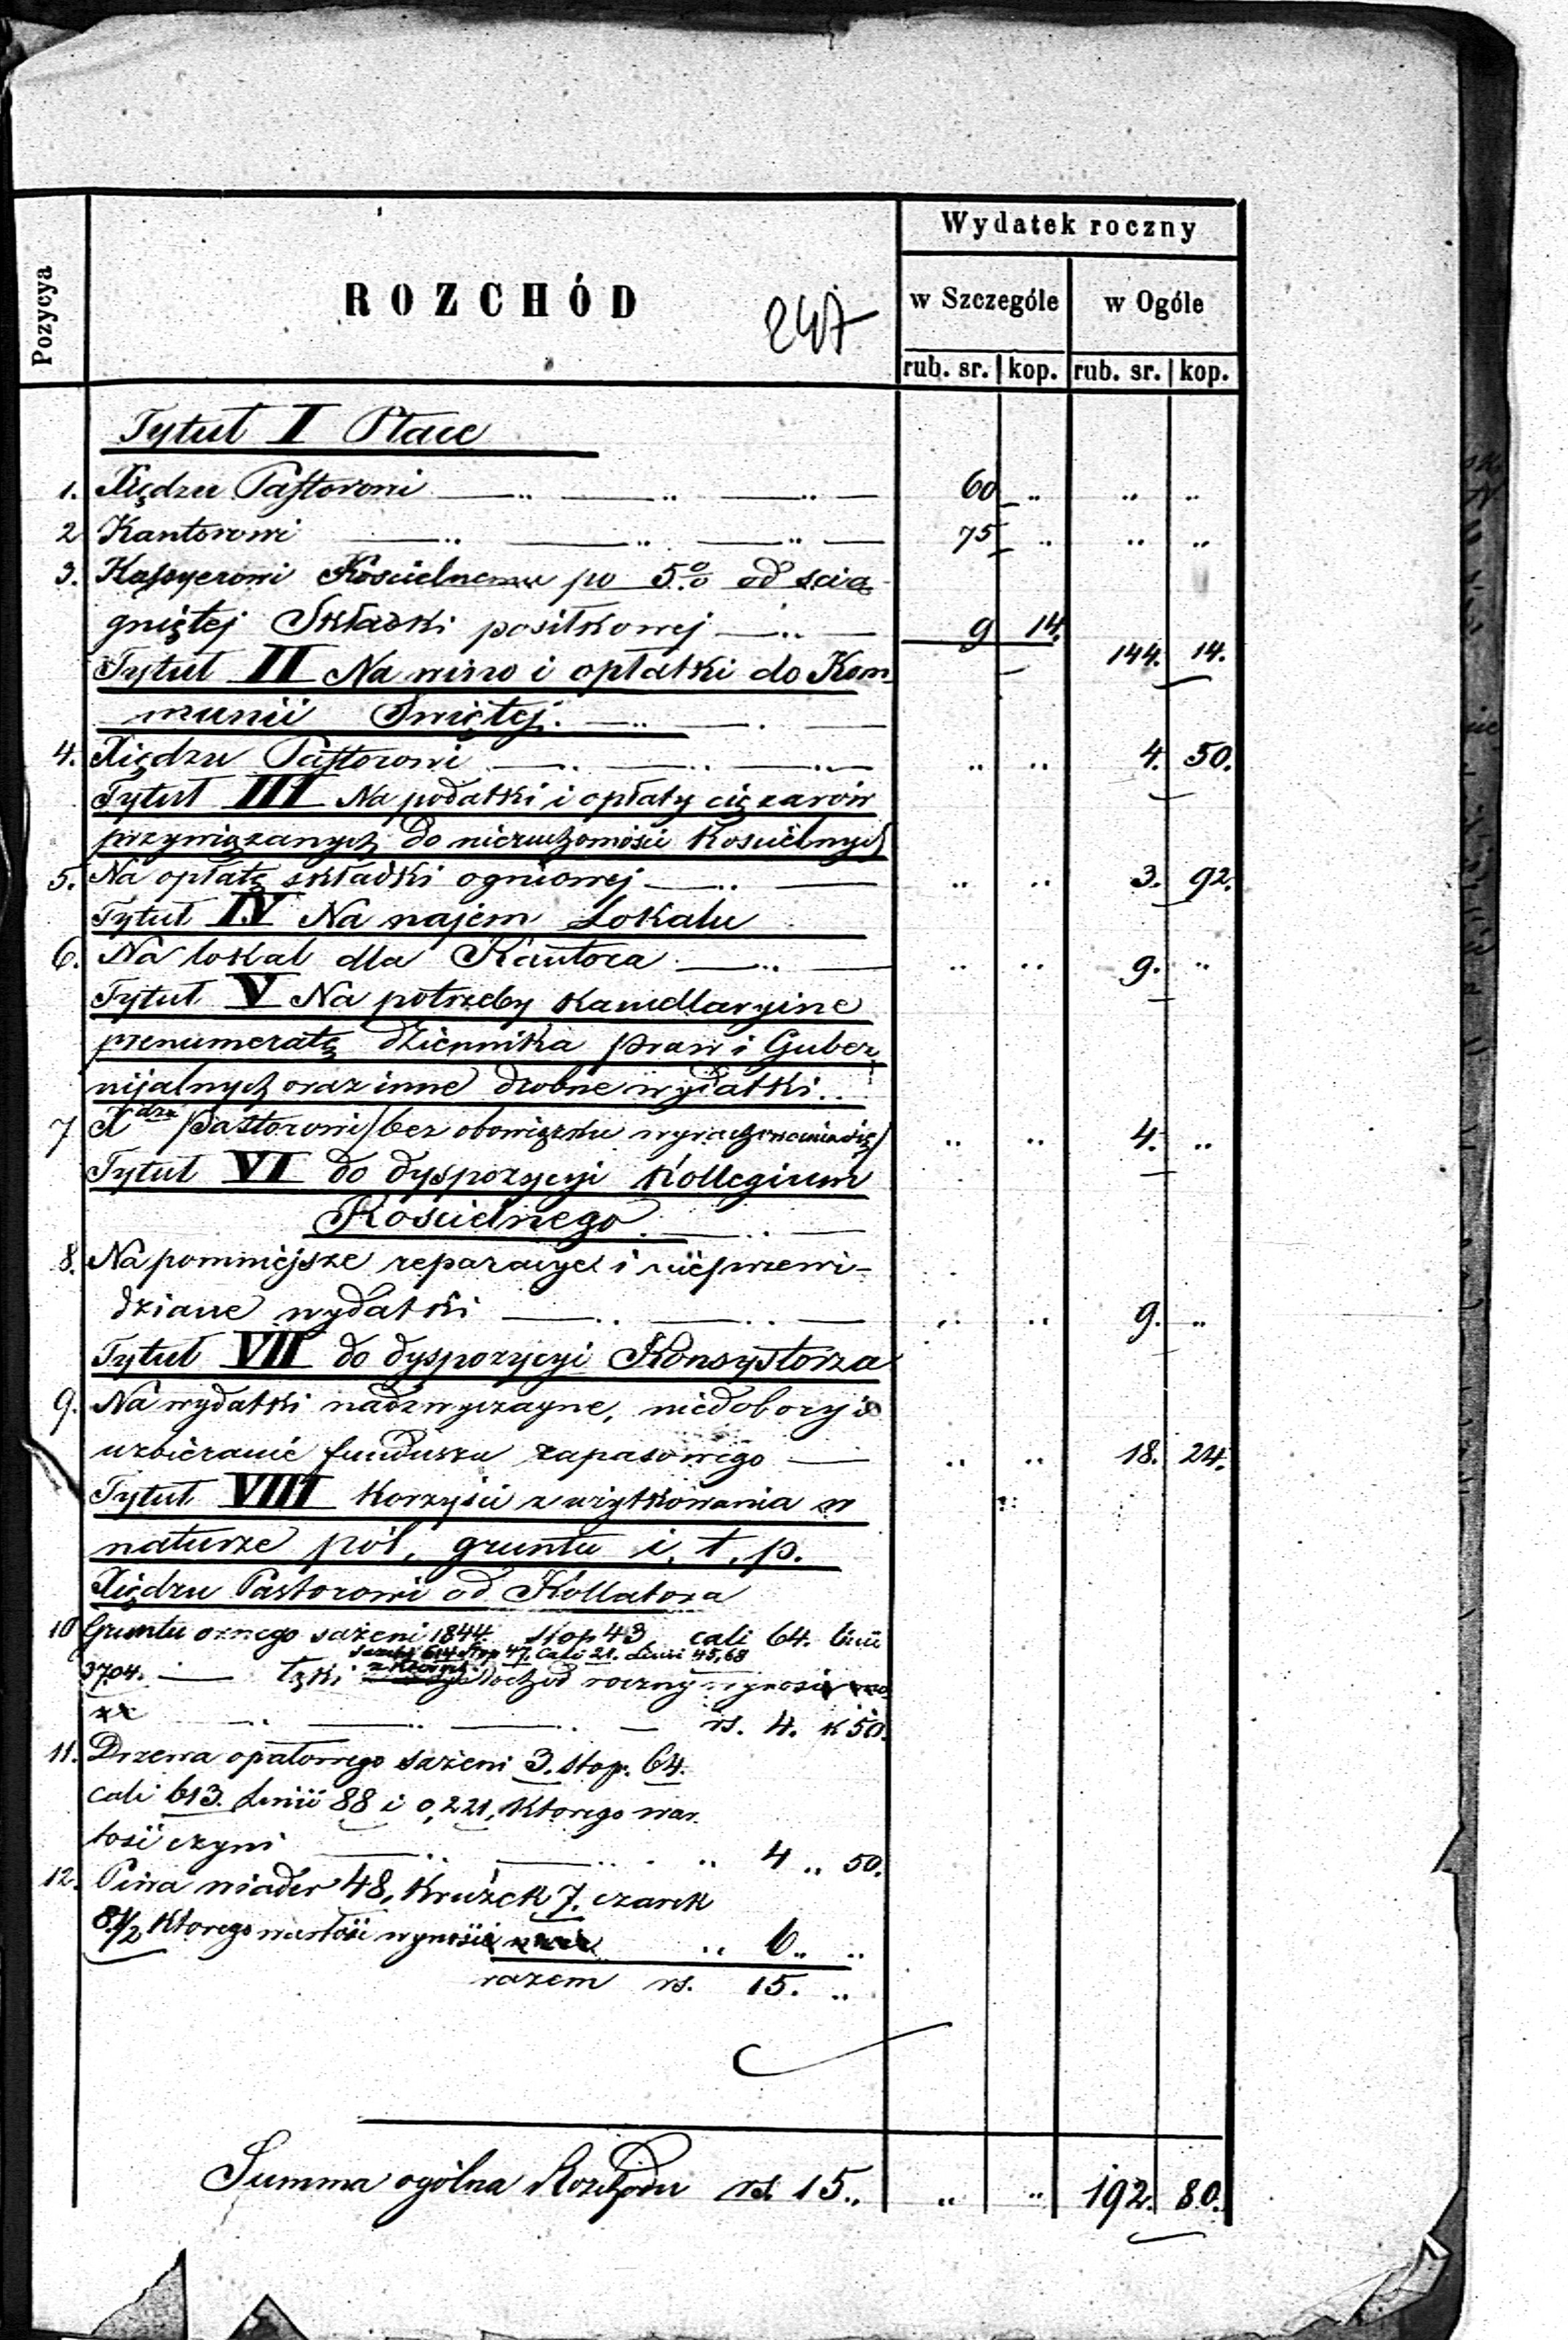 Wydatek roczny
Pozycya
ROZCHÓD
247
w Szczególe
w Ogóle
rub. sr. kop. rub. sr. kop.
Tytuł I Płace
1. Xiędzu Pastorowi 60 " " "
2. Kantorowi 75 " " "
3. Kassyerowi Kościelnemu po 5% od ścią-
gniętej Składki positkowej 9 14. 144. 14.
Tytuł II Na wino i opłatki do Kom-
munii Świętej.
4. Xiędzu Pastorowi " " 4. 50.
Tytuł III Na podatki i opłaty ciężarów
przywiązanych do nieruchomości Kościelnych
5. Na opłatę składki ogniowej " " 3. 92.
Tytuł IV Na najem Lokalu
6. Na lokal dla Kantora " " 9. "
Tytuł V Na potrzeby kancellaryine
prenumeratę dziennika praw i Guber-
nijalnych oraz inne drobne wydatki.
7 Xdzu Pastorowi /bez obowiązku wyrachowania się/ " " 4. "
Tytuł VI do dyspozycyi Kollegium
Kościelnego
8. Na pomniejsze reparacye i nieprzewi-
dziane wydatki " " 9. "
Tytuł VII do dyspozycyi Konsystorza
9. Na wydatki nadzwyczayne, niedobory i
uzbieranie funduszu zapasowego " " 18. 24.
Tytuł VIII Korzyści z użytkowania w
naturze pól, gruntu i. t. p.
Xiędzu Pastorowi od Kollatora
10 Gruntu ornego sażeni 1844 stop 43 cali 64. linii
sażeni 614 Stop 47. Cali 21. Linii 45,68
3704. Łąki z których dochód roczny wynosi
rs. 4. k 50.
11. Drzewa opałowego sażeni 3. stop. 64.
cali 613. linii 88 i 0,221, którego war-
tość czyni " 4 " 50.
12. Piwa wiader 48, Krużek 7. czarek
8.1/2 którego wartość wynosi " 6 " "
razem rs. 15. "
Summa ogólna Rozchodu rs. 15 " " " 192. 80.